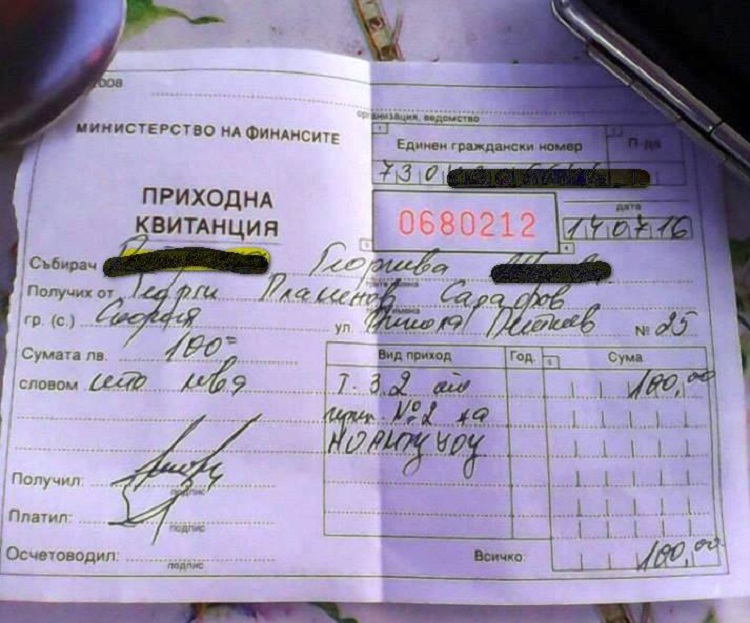 2008
организация, ведомство
МИНИСТЕРСТВО НА ФИНАНСИТЕ
Единен граждански номер П-да
730
ПРИХОДНА
КВИТАНЦИЯ
0680212
дата
140716
Събирач Георгиева
Получих от Георги Пламенов Сарафов
гр. (с.) София ул. Никола Петков № 25
Сумата лв. 100=
словом сто лева
Вид приход Год. Сума
Т. 3.2 от 100,00
прил. №2 на
НОАМТЦУОУ
Получил:
подпис
Платил:
подпис
Осчетоводил:
подпис
Всичко: 100,00